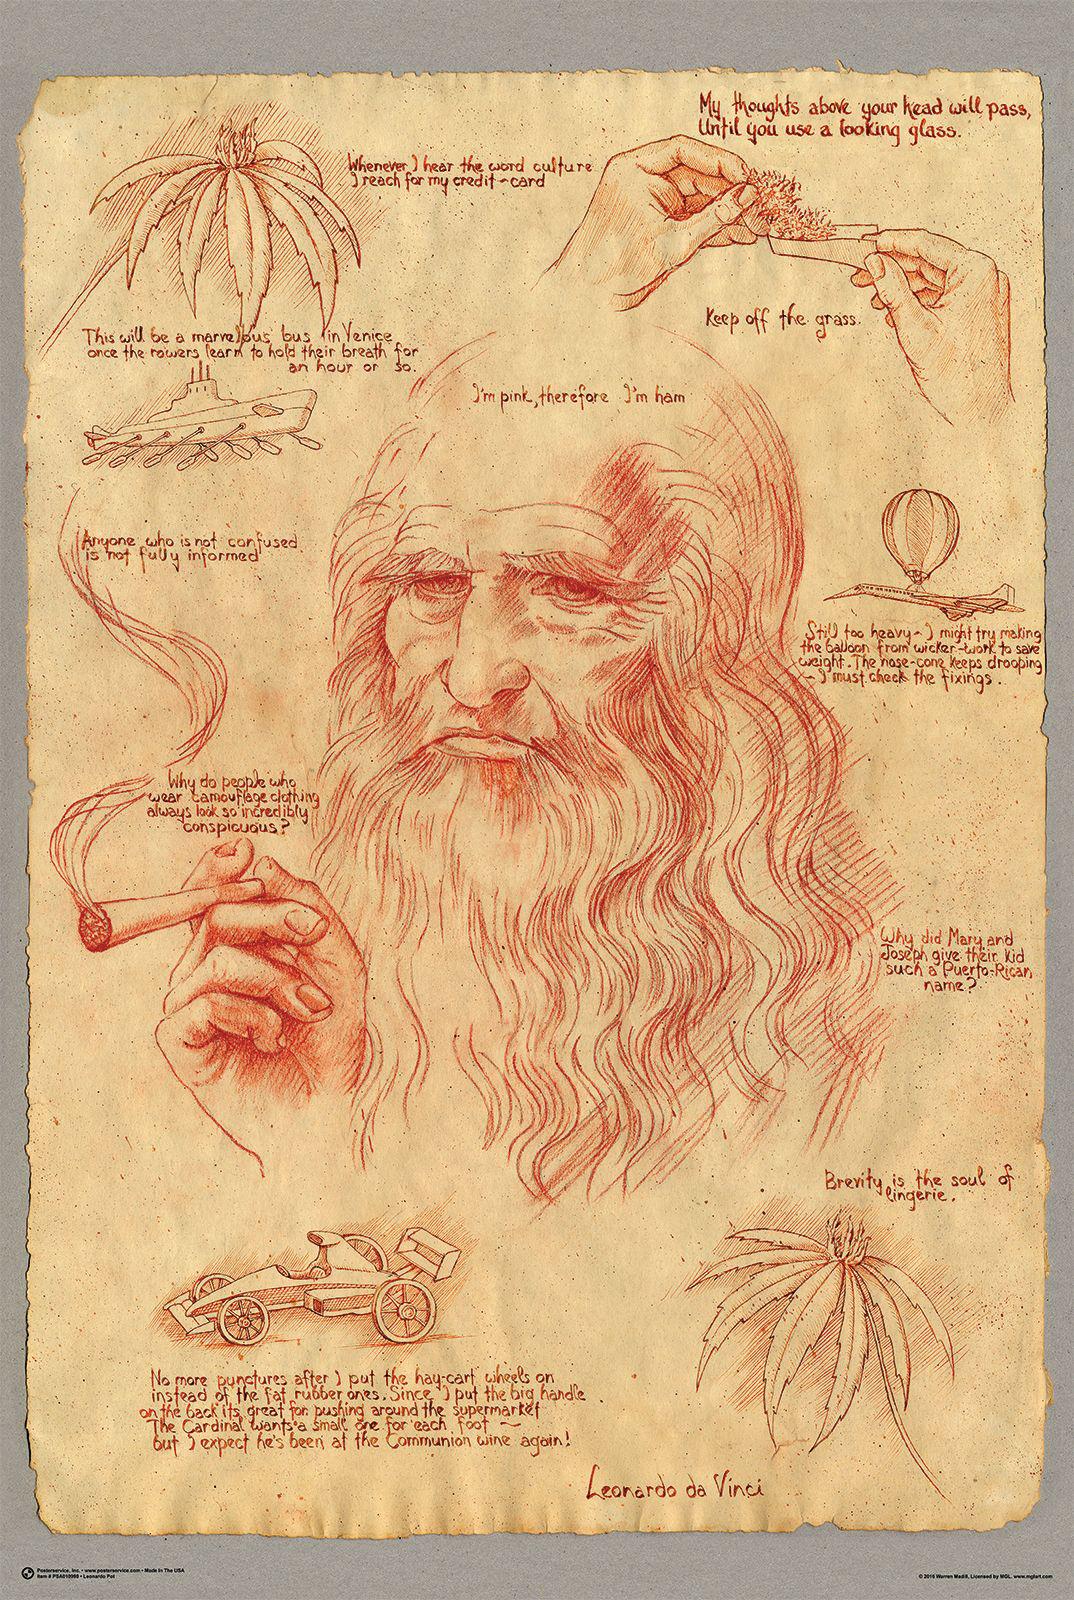 My thoughts above your head will pass,
Until you use a looking glass.
Whenever I hear the word culture
I reach for my credit-card
Keep off the grass.
This will be a marvellous bus in Venice
once the rowers learn to hold their breath for
an hour or so.
I'm pink, therefore I'm ham
Anyone who is not confused
is not fully informed
Still too heavy - I might try making
the balloon from wicker-work to save
weight. The nose-cone keeps drooping
- I must check the fixings.
Why do people who
wear camouflage clothing
always look so incredibly
conspicuous?
Why did Mary and
Joseph give their kid
such a Puerto-Rican
name?
Brevity is the soul of
lingerie.
No more punctures after I put the hay-cart wheels on
instead of the fat rubber ones. Since I put the big handle
on the back its great for pushing around the supermarket
The Cardinal wants a small one for each foot ~
but I expect he's been at the Communion wine again!
Leonardo da Vinci
Posterservice, Inc. • www.posterservice.com • Made In The USA
Item # PSA010998 • Leonardo Pot
© 2016 Warren Madill, Licensed by MGL. www.mglart.com